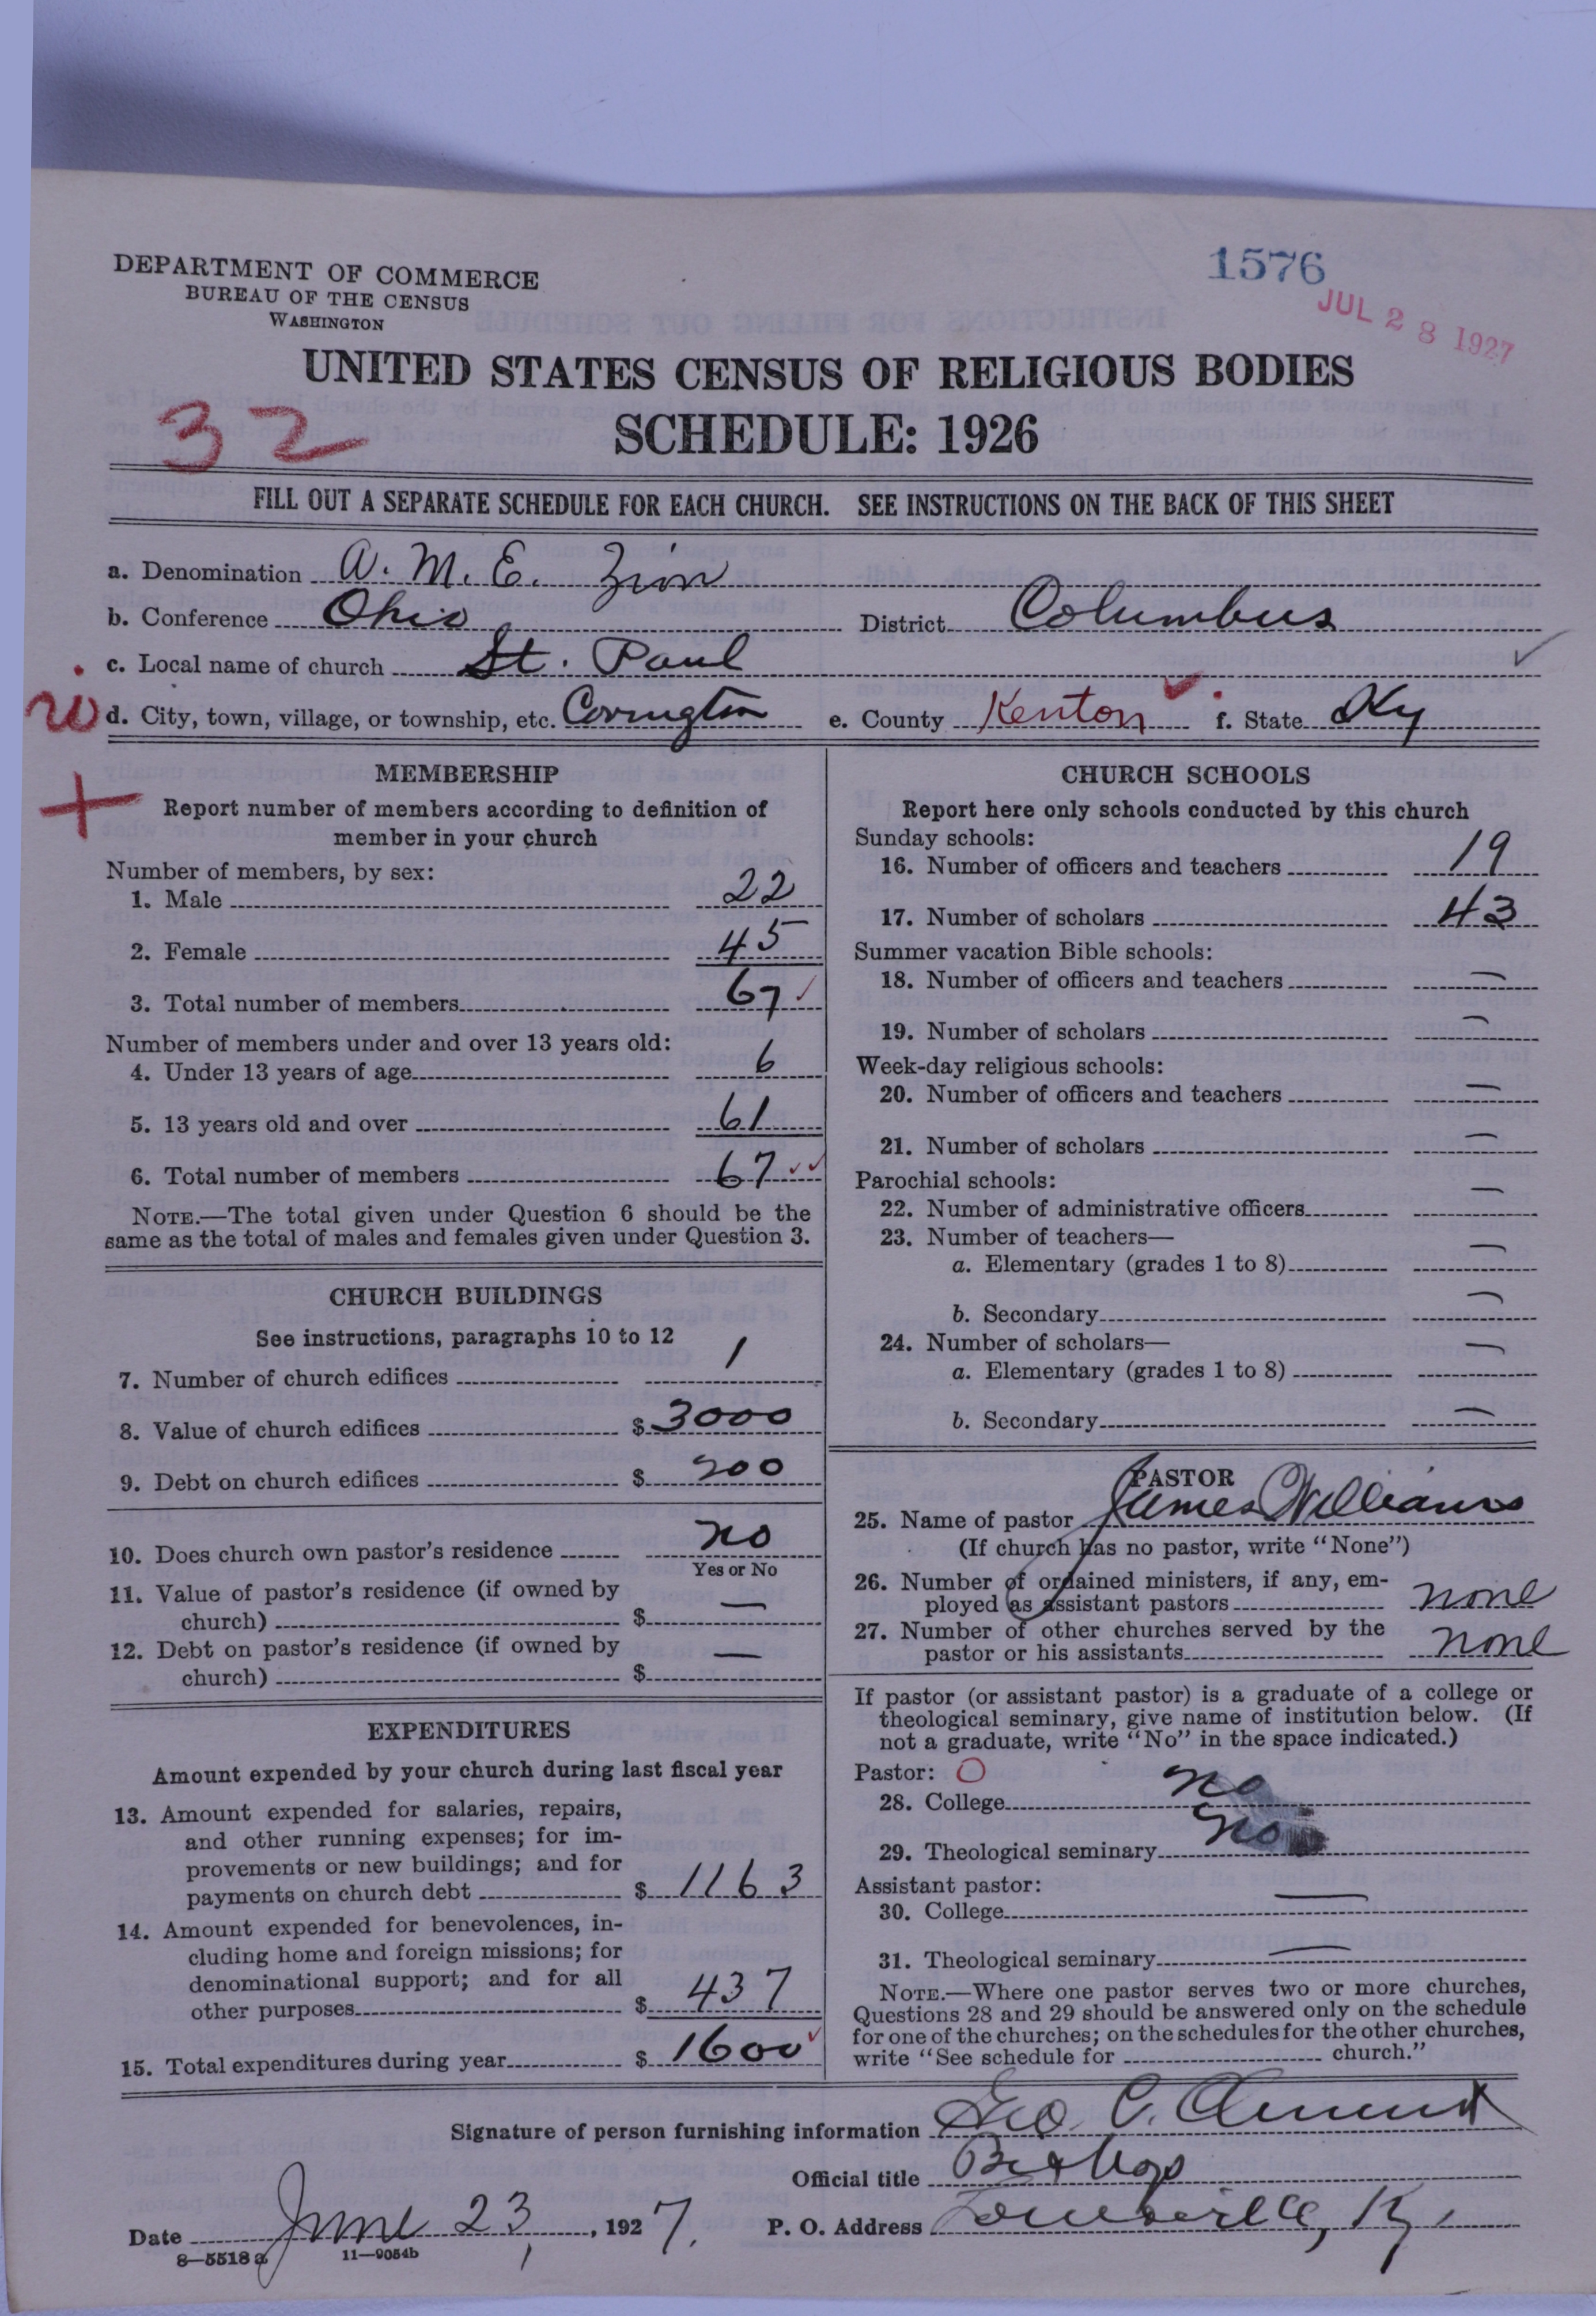 DEPARTMENT OF COMMERCE
BUREAU OF THE CENSUS
WASHINGTON
1576
JUL 28 1927
UNITED STATES CENSUS OF RELIGIOUS BODIES
SCHEDULE: 1926
32
FILL OUT A SEPARATE SCHEDULE FOR EACH CHURCH. SEE INSTRUCTIONS ON THE BACK OF THIS SHEET
a. Denomination A. M. E. Zion
b. Conference Ohio District Columbus
c. Local name of church St. Paul
d. City, town, village, or township, etc. Covington e. County Kenton f. State Ky
MEMBERSHIP
Report number of members according to definition of
member in your church
Number of members, by sex:
1. Male 22
2. Female 45
3. Total number of members 67
Number of members under and over 13 years old:
4. Under 13 years of age 6
5. 13 years old and over 61
6. Total number of members 67
NOTE.—The total given under Question 6 should be the
same as the total of males and females given under Question 3.
CHURCH BUILDINGS
See instructions, paragraphs 10 to 12
7. Number of church edifices 1
8. Value of church edifices $ 3000
9. Debt on church edifices $ 200
10. Does church own pastor's residence no
Yes or No
11. Value of pastor's residence (if owned by
church) $ —
12. Debt on pastor's residence (if owned by
church) $ —
EXPENDITURES
Amount expended by your church during last fiscal year
13. Amount expended for salaries, repairs,
and other running expenses; for im-
provements or new buildings; and for
payments on church debt $ 1163
14. Amount expended for benevolences, in-
cluding home and foreign missions; for
denominational support; and for all
other purposes $ 437
15. Total expenditures during year $ 1600
CHURCH SCHOOLS
Report here only schools conducted by this church
Sunday schools:
16. Number of officers and teachers 19
17. Number of scholars 43
Summer vacation Bible schools:
18. Number of officers and teachers —
19. Number of scholars —
Week-day religious schools:
20. Number of officers and teachers —
21. Number of scholars —
Parochial schools:
22. Number of administrative officers —
23. Number of teachers—
a. Elementary (grades 1 to 8) —
b. Secondary —
24. Number of scholars—
a. Elementary (grades 1 to 8) —
b. Secondary —
PASTOR
25. Name of pastor James Williams
(If church has no pastor, write "None")
26. Number of ordained ministers, if any, em-
ployed as assistant pastors none
27. Number of other churches served by the
pastor or his assistants none
If pastor (or assistant pastor) is a graduate of a college or
theological seminary, give name of institution below. (If
not a graduate, write "No" in the space indicated.)
Pastor: O
28. College no
29. Theological seminary no
Assistant pastor:
30. College —
31. Theological seminary —
NOTE.—Where one pastor serves two or more churches,
Questions 28 and 29 should be answered only on the schedule
for one of the churches; on the schedules for the other churches,
write "See schedule for church."
Signature of person furnishing information Geo. C. Clement
Official title Bishop
Date June 23, 1927. P. O. Address Louisville, Ky.
8—5518a 11—9054b